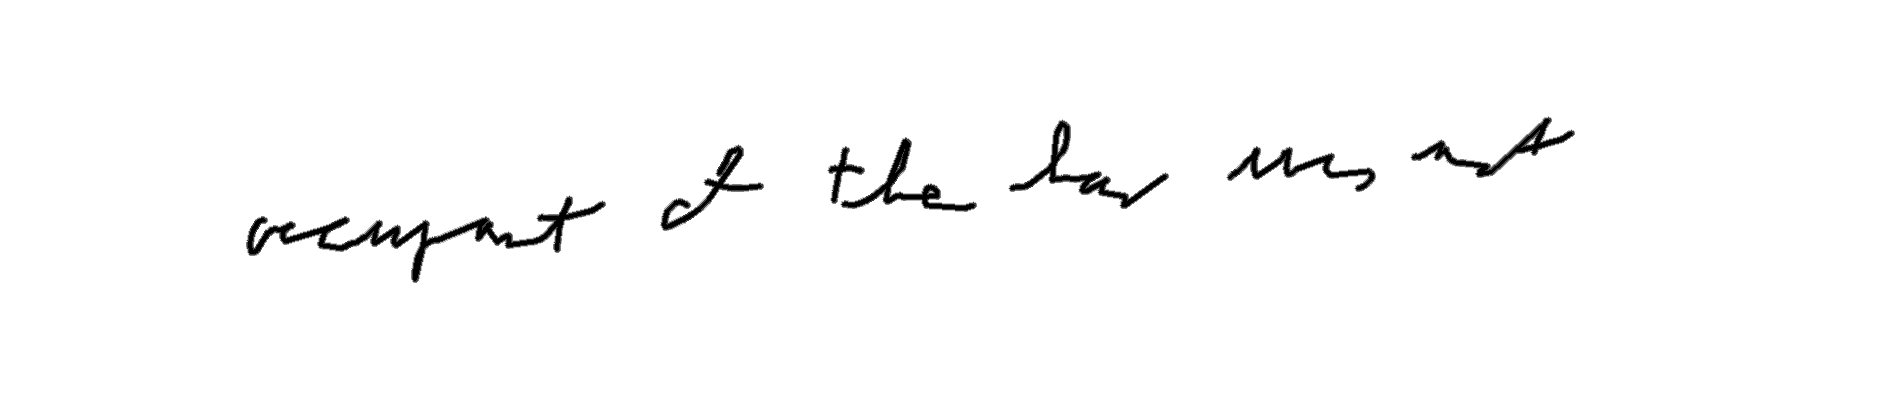 occupant of the bar was not